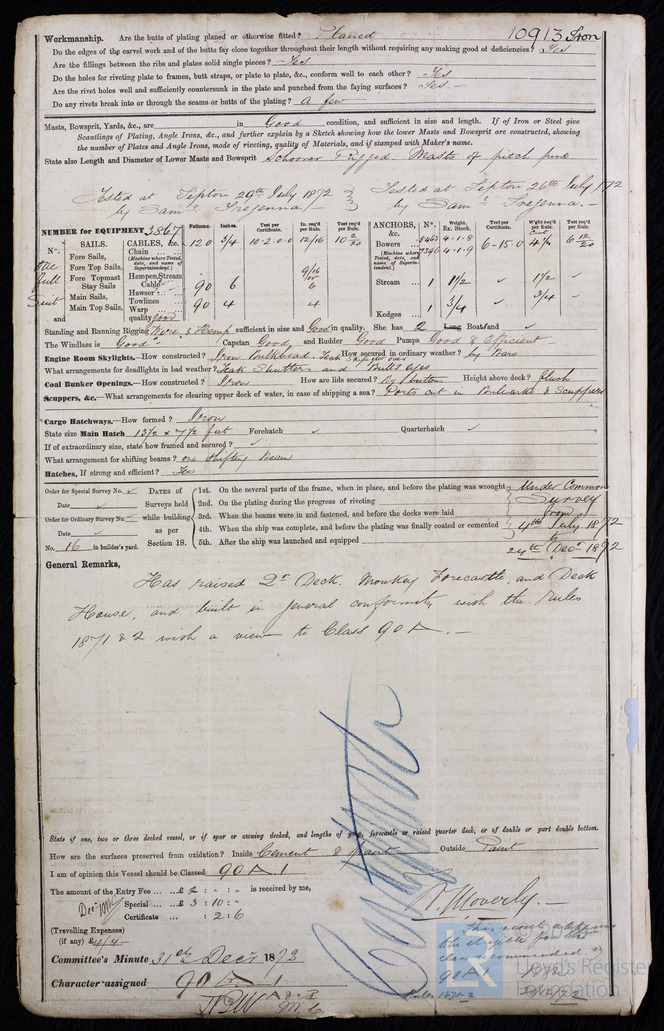 10913 Iron
Workmanship. Are the butts of plating planed or otherwise fitted? Planed
Do the edges of the carvel work and of the butts fay close together throughout their length without requiring any making good of deficiencies? Yes
Are the fillings between the ribs and plates solid single pieces? Yes
Do the holes for riveting plate to frames, butt straps, or plate to plate, &c., conform well to each other? Yes
Are the rivet holes well and sufficiently countersunk in the plate and punched from the faying surfaces? Yes.
Do any rivets break into or through the seams or butts of the plating? A few
Masts, Bowsprit, Yards, &c., are in Good condition, and sufficient in size and length. If of Iron or Steel give
Scantlings of Plating, Angle Irons, &c., and further explain by a Sketch showing how the lower Masts and Bowsprit are constructed, showing
the number of Plates and Angle Irons, mode of riveting, quality of Materials, and if stamped with Maker's name.
State also Length and Diameter of Lower Masts and Bowsprit Schooner Rigged. Masts of pitch pine
Tested at Tipton 29th July 1872 Tested at Tipton 26th July 1872
by Saml Tregenna. by Saml Tregenna.
NUMBER for EQUIPMENT 3867 Fathoms. Inches. Test per Certificate. In. req'd per Rule. Test req'd per Rule. ANCHORS, &c. No. Weight. Ex. Stock. Test per Certificate. Wght req'd per Rule. Test req'd per Rule.
No. SAILS. CABLES, &c. Chain 120 3/4 10-2-0-0 12/16 Bowers 5463 4-1-8 6-15-0
Fore Sails, (Machine where Tested, date, and name of Superintendent.) 7396 4-1-9 (Machine where Tested, date, and name of Superintendent.)
Fore Top Sails, Hempen Stream 9/16 or
Fore Topmast Stay Sails Cable 90 6 6 Stream 1 1 1/2 1 1/2
Main Sails, Hawser
Main Top Sails, Towlines 90 4 4 Kedges 1 3/4 3/4
and Warp quality good
Standing and Running Rigging Wire & Hemp sufficient in size and Good in quality. She has 2 Long Boat and
The Windlass is Good Capstan Good and Rudder Good Pumps Good & Efficient
Engine Room Skylights.—How constructed? Iron Bulkhead. Teak Skylight over How secured in ordinary weather? by Bars
What arrangements for deadlights in bad weather? Teak Shutters and Bulls eyes
Coal Bunker Openings.—How constructed? Iron How are lids secured? By buttons Height above deck? flush
Scuppers, &c.—What arrangements for clearing upper deck of water, in case of shipping a sea? Ports cut in Bulwarks & Scuppers
Cargo Hatchways.—How formed? Iron
State size Main Hatch 13 1/2 x 7 1/2 feet Forehatch Quarterhatch
If of extraordinary size, state how framed and secured?
What arrangement for shifting beams? one shifting Beam
Hatches, If strong and efficient? Yes
Order for Special Survey No. DATES of 1st. On the several parts of the frame, when in place, and before the plating was wrought Under Common
Date Surveys held 2nd. On the plating during the progress of riveting Survey
Order for Ordinary Survey No. while building 3rd. When the beams were in and fastened, and before the decks were laid from
Date as per 4th. When the ship was complete, and before the plating was finally coated or cemented 4th July 1872
No. 16 in builder's yard. Section 18. 5th. After the ship was launched and equipped to
24th Decr 1872
General Remarks,
Has raised Qr Deck. Monkey Forecastle, and Deck
House, and built in general conformity with the Rules
1871 & 2 with a view to Class 90 A.
State if one, two or three decked vessel, or if spar or awning decked, and lengths of poop, forecastle or raised quarter deck, or of double or part double bottom.
How are the surfaces preserved from oxidation? Inside Cement & paint Outside Paint
I am of opinion this Vessel should be Classed 90 A 1
The amount of the Entry Fee £ 2 : - : - is received by me,
Special £ 3 : 10 : -
Certificate : 2 : 6
(Travelling Expenses)
(if any) £
Committee's Minute 31st Decr 1872
Character assigned 90 A 1
Lloyd's Register
Foundation